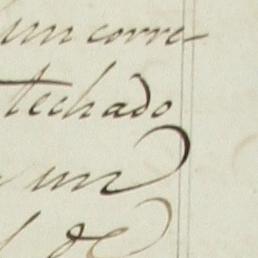 un corre-
techado
un
de